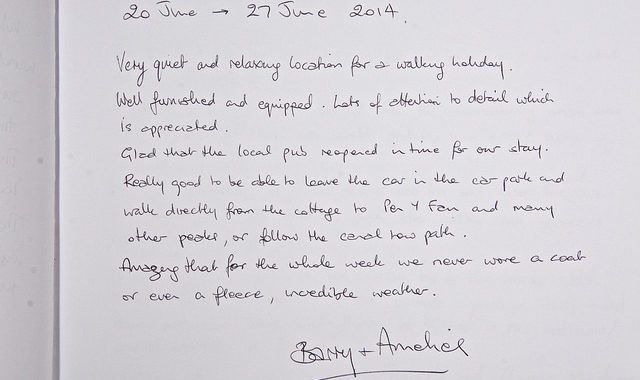 20 June → 27 June 2014.
Very quiet and relaxing location for a walking holiday.
Well furnished and equipped. Lots of attention to detail which
is appreciated.
Glad that the local pub reopened in time for our stay.
Really good to be able to leave the car in the car park and
walk directly from the cottage to Pen Y Fan and many
other peaks, or follow the canal tow path.
Amazing that for the whole week we never wore a coat
or even a fleece, incredible weather.
Barry +